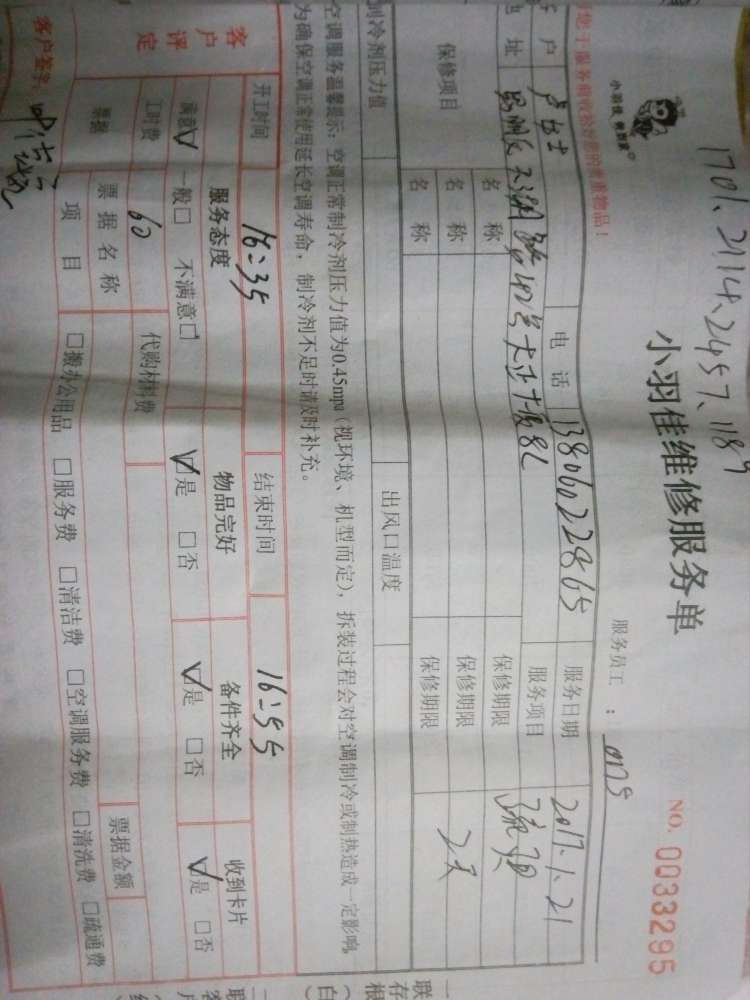 1701、2114、2457、1189
小羽佳 教到家
小羽佳维修服务单
NO. 0033295
服务员工 : 0175
于服务前收拾好您的贵重物品!
客 户 卢女士 电 话 13806022865 服务日期 2017.1.21
地 址 大正大厦8C 服务项目 疏通
保修项目 名 称 保修期限
名 称 保修期限 2天
名 称 保修期限
制冷剂压力值 出风口温度
空调服务温馨提示: 空调正常制冷剂压力值为0.45mpa (视环境、机型而定), 拆装过程会对空调制冷或制热造成一定影响,
为确保空调正常使用延长空调寿命, 制冷剂不足时请及时补充。
开工时间 16:35 结束时间 16:55
客户评定 服务态度 物品完好 备件齐全 收到卡片
满意☑ 一般□ 不满意□ ☑是 □否 ☑是 □否 ☑是 □否
工时费 60 代购材料费
票据 票据名称 票据金额
项 目 □搬办公用品 □服务费 □清洁费 □空调服务费 □清洗费 □疏通费
客户签字: